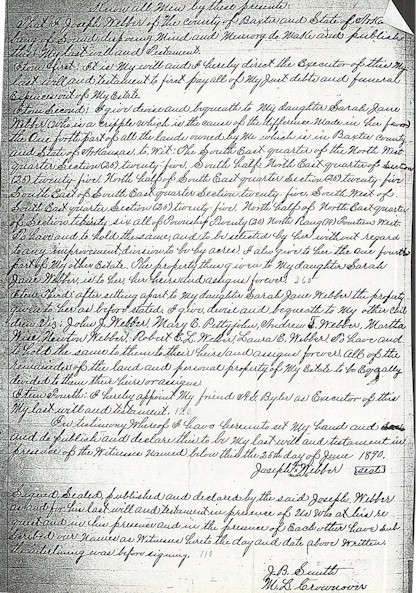 Know all Men by these presents:
That I Joseph Webber of the county of Baxter and State of Arka
being of Sound disposing Mind and Memory do Make and publish
this My last will and Testament.
Item first: It is my Will and I hereby direct the Executor of this My
last will and Testament to first pay all of My Just debts and funeral
expenses out of My Estate.
Item Second: I give devise and bequeath to My daughter Sarah Jane
Webber (who is a cripple which is the cause of the difference made in her favor
the One forth part of all the lands owned by Me which is in Baxter county
and State of Arkansas, to Wit: The South East quarter of the North West
quarter Section (25) twenty-five, South half North East quarter of Section
(25) twenty five, North half of South East quarter Section (25) twenty five
South East of South East quarter Section twenty five, South West of
South East quarter Section (25) twenty five. North half of North East quarter
of Section thirty six all of Township Twenty (20) North Rang (14) Fourteen West
To have and to hold the same, and to be selected by her without regard
to any improvement division to be by acres. I also give to her the One fourth
part of My other Estate. The property then given to my daughter Sarah
Jane Webber, is to her, her heirs and assigns forever.
Item Third: after setting apart to my daughter Sarah Jane Webber the property
given to her as before stated. I give, devise and bequeath to my other chil
dren viz: John J. Webber, Mary E. Pettyjohn, Andrew S. Webber, Martha
Wise, Newton Webber, Robert E. L. Webber, Laura E. Webber To have and
to hold the same to them to their heirs and assigns forever. All of the
remainder of the land and personal property of My Estate to be Equally
divided to them their heirs or assigns
Item Fourth: I hereby appoint My friend A.A. Byler as Executor of this
My last will and testament.
In testimony Whereof I have hereunto set My hand and
and do publish and declare this to be My last will and testament in
presence of the Witnesses Named below this the 26th day of June 1890.
Joseph Webber seal
Signed, Sealed, published and declared by the said Joseph Webber
as and for his last will and testament in presence of us who at his re
quest and in his presence and in the presence of Each other have sub
scribed our Names as Witnesses hereto the day and date above Written
the interlining was before signing.
J. B. Smith
M. L. Crownover